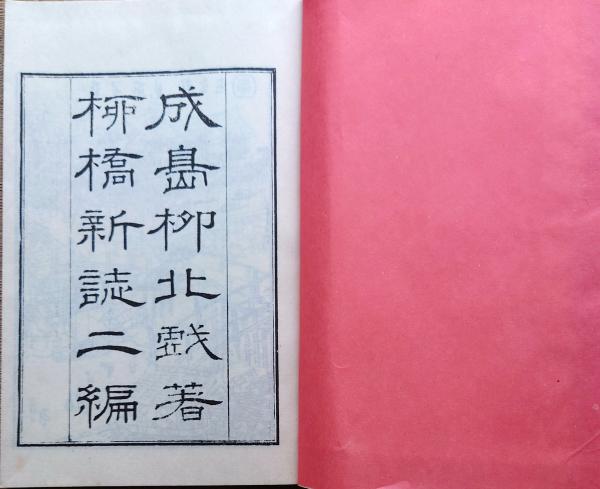 成嶌柳北戯著
桺橋新誌二編